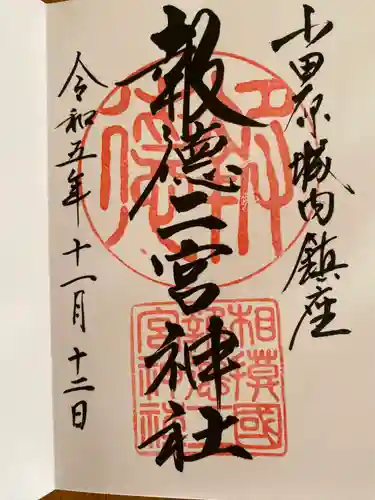 小田原城内鎮座
報徳二宮神社
令和五年十一月十二日
相模國
報徳二
宮神社